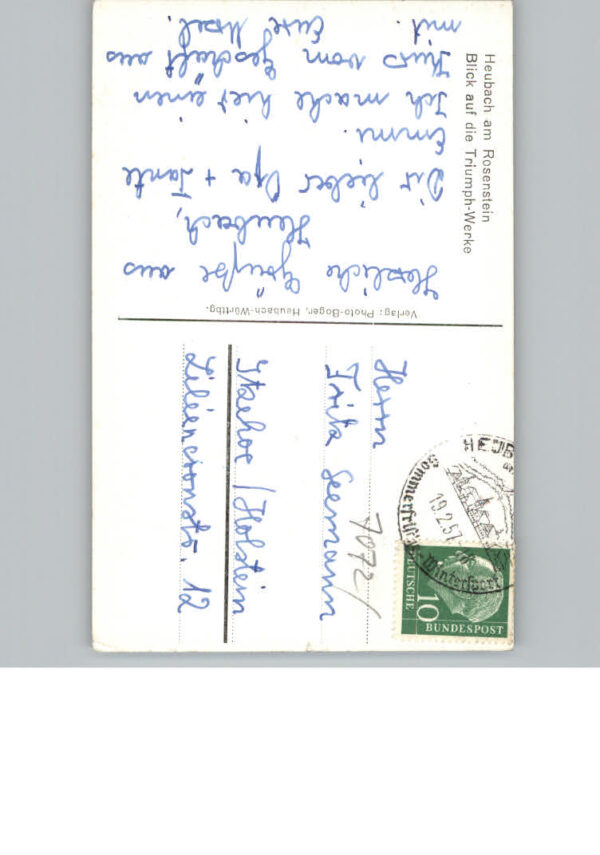 Heubach am Rosenstein
Blick auf die Triumph-Werke
Herzliche Grüße aus
Heubach,
Dir lieber Opa + Tante
Emmi.
Ich mache hier einen
Kurs vom Geschäft aus
mit. Eure Ursel.
Verlag: Photo-Boger, Heubach-Württbg.
HEUB
19.2.57
Sommerfrische
Wintersport
DEUTSCHE
BUNDESPOST
10
7072/
Herrn
Fritz Seemann
Itzehoe / Holstein
Liliencronstr. 12